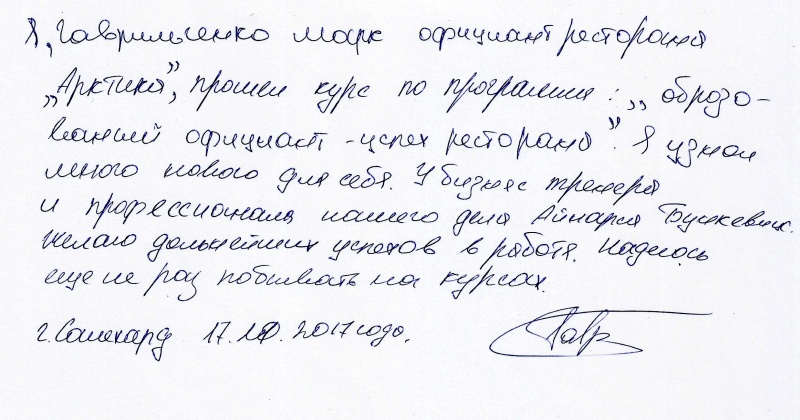 Я, Гаврильченко Марк официант ресторана
„Арктика”, прошел курс по программе: „образо-
ванный официант - успех ресторана”. Я узнал
много нового для себя. У бизнес тренера
и профессионала нашего дела Айнарса Бушкевиц.
Желаю дальнейших успехов в работе. Надеюсь
еще не раз побывать на курсах.
г. Салехард 17.10.2017 года.
Гавр